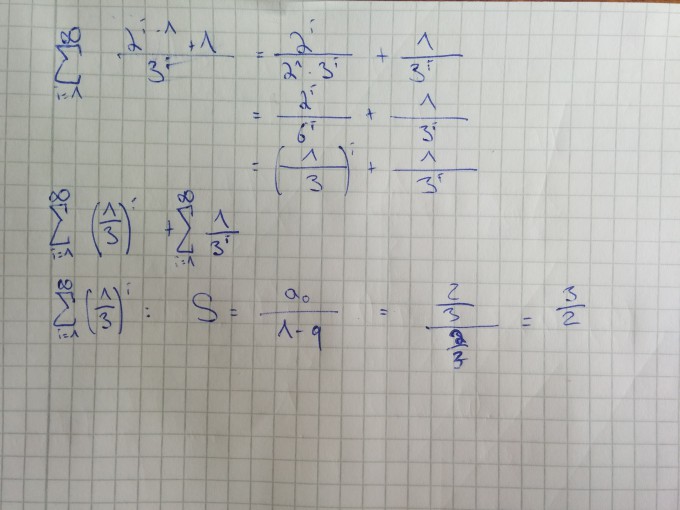 ∑_{i=1}^{∞} (2^{i-1}+1)/3^i = 2^i/(2^1·3^i) + 1/3^i
= 2^i/6^i + 1/3^i
= (1/3)^i + 1/3^i
∑_{i=1}^{∞} (1/3)^i + ∑_{i=1}^{∞} 1/3^i
∑_{i=1}^{∞} (1/3)^i : S = a_0/(1-q) = (2/3)/(2/3) = 3/2